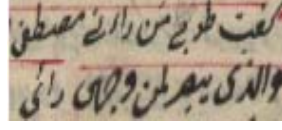 گفت طوبی من رآنی مصطفی
والذی یبصر لمن وجهی رای